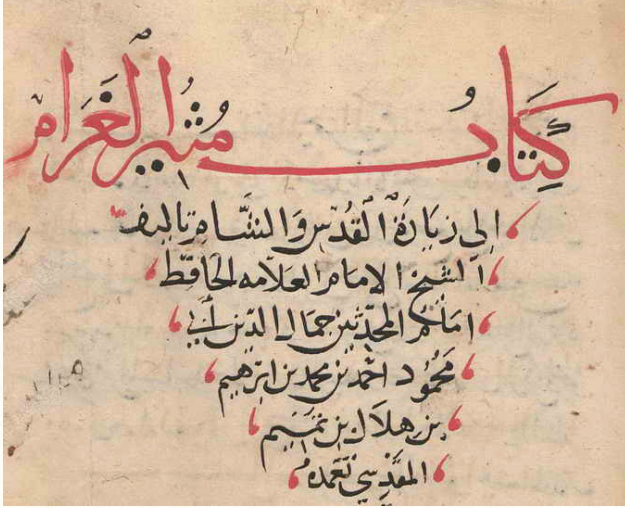 كِتَابُ مُثِيرُ الْغَرَامِ
الى زِيَارَةِ الْقُدْسِ وَالشَّامِ تاليفُ
الشيخ الامام العلامه الحافظ
امام المحدثين جمال الدين أبي
مَحْمُود احمد بن محمد بن ابرهيم
بن هلال بن تميم
المقدسي تغمده